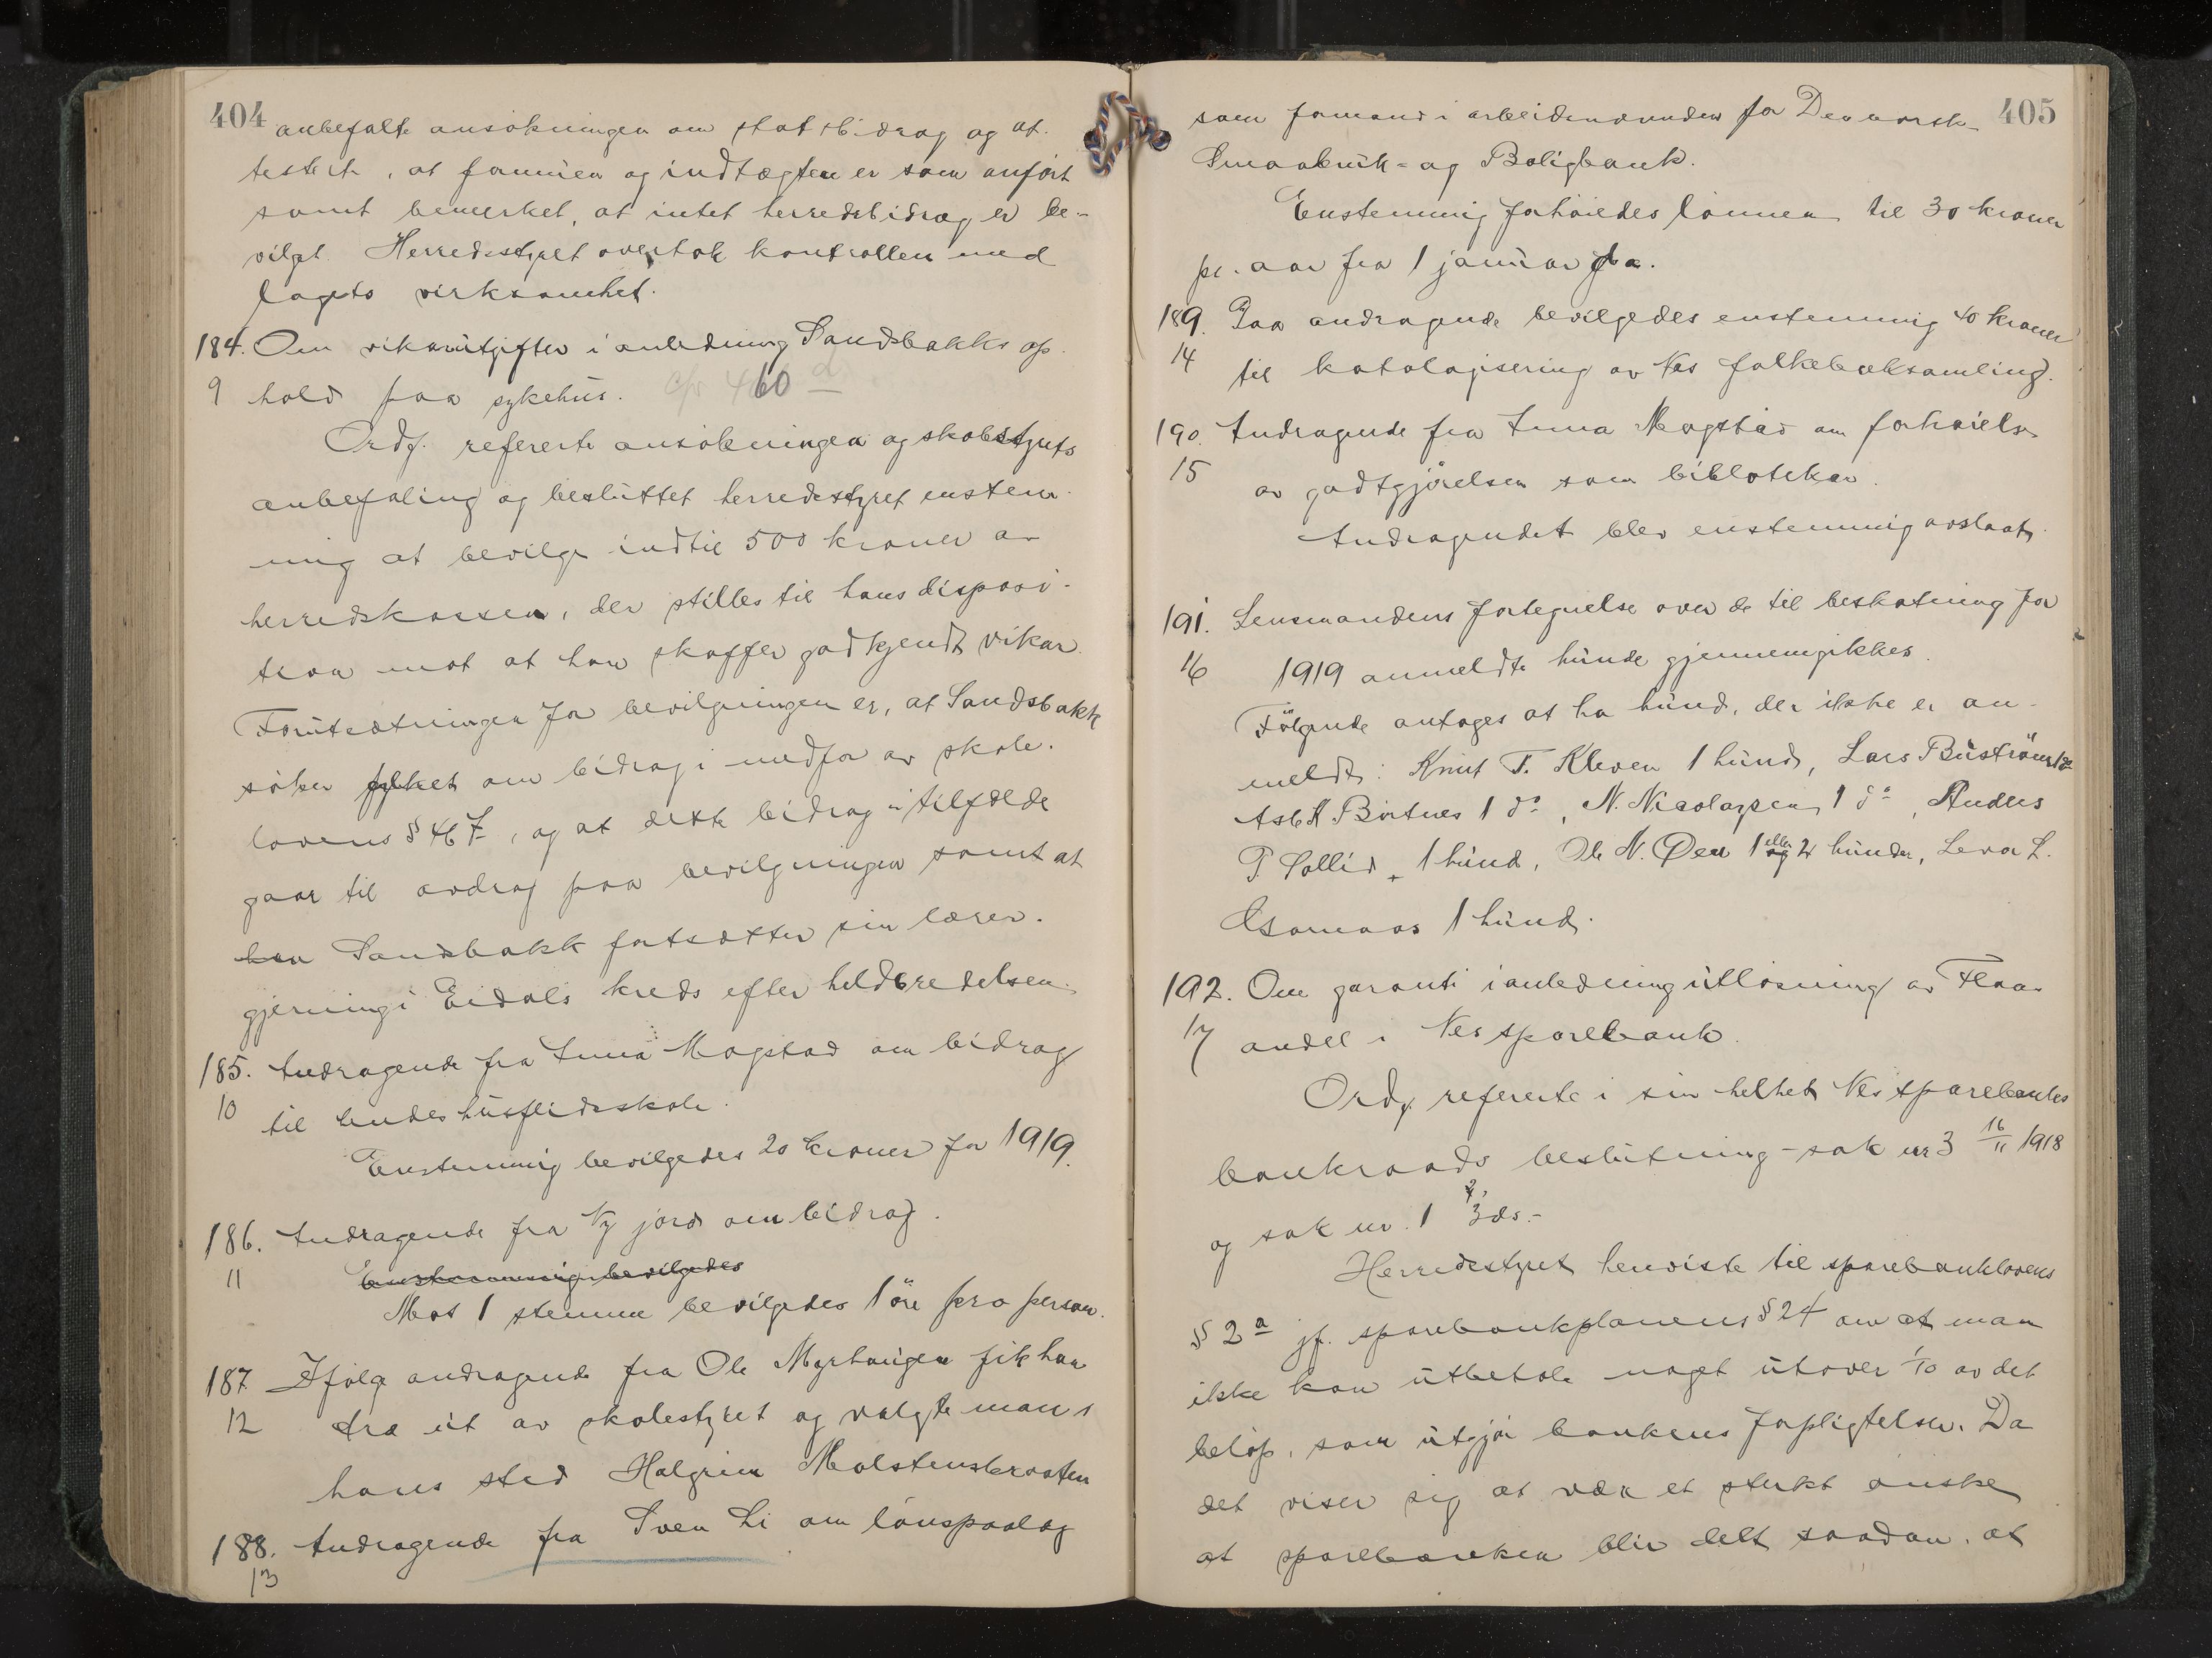 404
anbefalte ansökningen om statsbidrag og at-
testerte, at formuen og indtægten er som anfört
samt bemerket, at intet herredsbidrag er be-
vilget. Herredsstyret overtok kontrollen med
lagets virksomhet.
184. Om vikarutgifter i anledning Sandsbakks op-
9 hold paa sykehus. 460 d
Ordf. refererte ansökningen og skolestyrets
anbefaling og besluttet herredsstyret enstem-
mig at bevilge indtil 500 kroner av
herredskassen, der stilles til hans disposi-
tion mot at han skaffer godkjendt vikar.
Forutsætningen for bevilgningen er, at Sandsbakk
söker fylket om bidrag i medför av skole-
lovens § 46 7, og at dette bidrag i tilfælde
gaar til avdrag paa bevilgningen samt at
han Sandsbakk fortsætter sin lærer-
gjerning i Eidals kreds efter helbredelsen.
185. Andragende fra Anna Mogstad om bidrag
10 til hendes husflidsskole.
Enstemmig bevilgedes 20 kroner for 1919.
186. Andragende fra Ny jord om bidrag.
11 Enstemmig bevilgedes
Mot 1 stemme bevilgedes 1 öre pro person.
187 Ifölge andragende fra Ole Myrhaugen fik han
12 træ ut av skolestyret og valgte man i
hans sted Halgrim Molstenskrosten
188. Andragende fra Sven Li om lönspaalæg
13
405
som formand i arbeidernævnden for Den norske
Smaabruk- og Boligbank.
Enstemmig forhöiedes lönnen til 30 kroner
pr. aar fra 1 januar f. a.
189. Paa andragende bevilgedes enstemmig 40 kroner
14 til katalogisering av Nes folkeboksamling.
190. Andragende fra Anna Mogstad om forhöielse
15 av godtgjörelsen som bibliotekar.
Andragendet blev enstemmig avslaat.
191. Lensmandens fortegnelse over de til beskatning for
16 1919 anmeldte hunde gjennemgikkes.
Fölgende antages at ha hund, der ikke er an-
meldt: Knut T. Kleven 1 hund, Lars Buström 1 do
Asle K Börtnes 1 do, N. Nicolaysen 1 do, Anders
P Sollid 1 hund, Ole N. Öen 1 eller og 2 hunder, Levor L.
Garnaas 1 hund.
192. Om garanti i anledning utlösning av Flaa-
17 andel i Nes sparebank.
Ordf. refererte i sin helhet Nes sparebanks
bankraads beslutning - sak nr 3 16/11 1918
og sak nr. 1 2/3 ds.-
Herredsstyret henviste til sparebanklovens
§ 2 a jf. sparebankplanens § 24 om at man
ikke kan utbetale noget utover 1/10 av det
belöp, som utgjör bankens forpligtelser. Da
det viser sig at være et sterkt önske
at sparebanken blir delt saadan, at